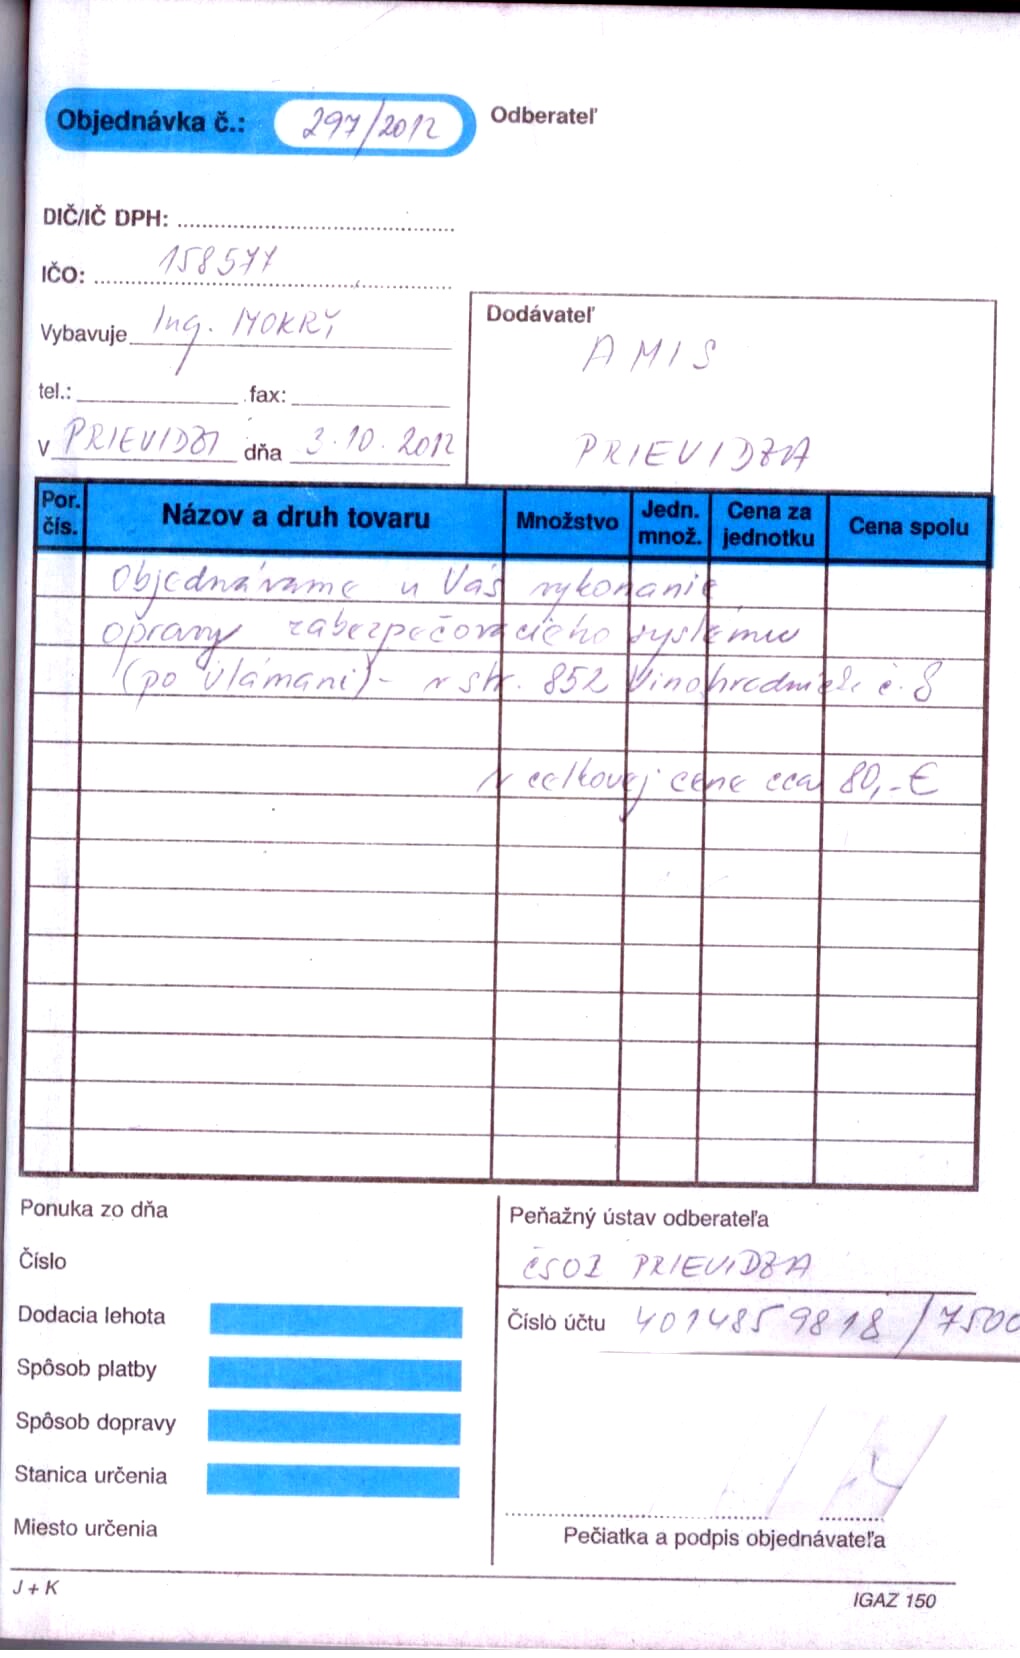 Objednávka č.: 297/2012
Odberateľ
DIČ/IČ DPH:
IČO: 158577
Vybavuje Ing. MOKRÝ
tel.: fax:
V PRIEVIDZI dňa 3.10.2012
Dodávateľ
AMIS
PRIEVIDZA
Por. čís. Názov a druh tovaru Množstvo Jedn. množ. Cena za jednotku Cena spolu
Objednávame u Vás vykonanie
opravy zabezpečovacieho systému
(po vlámaní) - v str. 852 Vinohradnícka č. 8
v celkovej cene cca 80,-€
Ponuka zo dňa
Číslo
Dodacia lehota
Spôsob platby
Spôsob dopravy
Stanica určenia
Miesto určenia
Peňažný ústav odberateľa
ČSOB PRIEVIDZA
Číslo účtu 4014859818/7500
Pečiatka a podpis objednávateľa
J + K
IGAZ 150